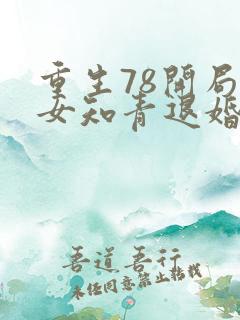 重生78开局
女知青退婚
吾道吾行
未经同意禁止转载